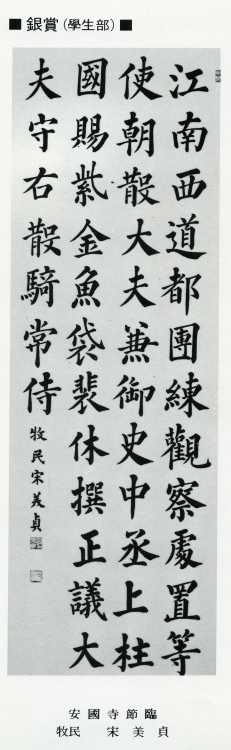 ■ 銀賞 (學生部) ■
江南西道都團練觀察處置等
使朝散大夫兼御史中丞上柱
國賜紫金魚袋裴休撰正議大
夫守右散騎常侍
牧民宋美貞
安國寺節臨
牧民 宋美貞